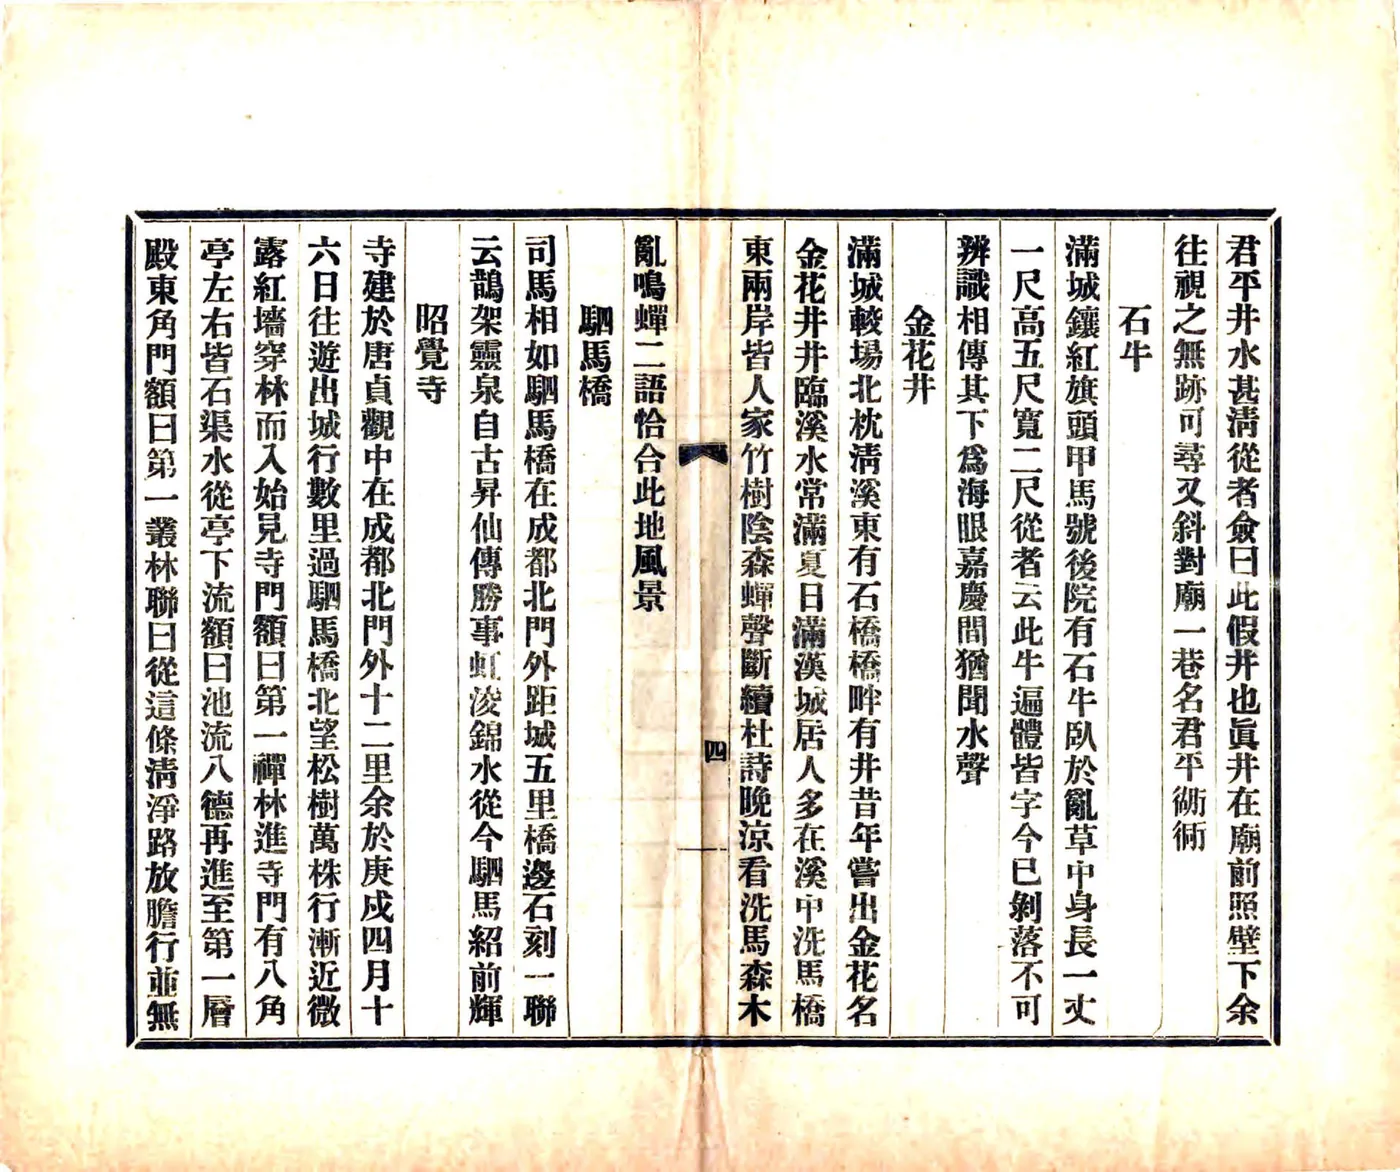 君平井水甚淸從者僉曰此假井也眞井在廟前照壁下余
往視之無跡可尋又斜對廟一巷名君平衚衕
石牛
滿城鑲紅旗頭甲馬號後院有石牛臥於亂草中身長一丈
一尺高五尺寬二尺從者云此牛遍體皆字今已剝落不可
辨識相傳其下爲海眼嘉慶間猶聞水聲
金花井
滿城較場北枕淸溪東有石橋橋畔有井昔年嘗出金花名
金花井井臨溪水常滿夏日滿漢城居人多在溪中洗馬橋
東兩岸皆人家竹樹陰森蟬聲斷續杜詩晚涼看洗馬森木
四
亂鳴蟬二語恰合此地風景
駟馬橋
司馬相如駟馬橋在成都北門外距城五里橋邊石刻一聯
云鵲架靈泉自古昇仙傳勝事虹淩錦水從今駟馬紹前輝
昭覺寺
寺建於唐貞觀中在成都北門外十二里余於庚戌四月十
六日往遊出城行數里過駟馬橋北望松樹萬株行漸近微
露紅墻穿林而入始見寺門額曰第一禪林進寺門有八角
亭左右皆石渠水從亭下流額曰池流八德再進至第一層
殿東角門額曰第一叢林聯曰從這條淸淨路放膽行並無